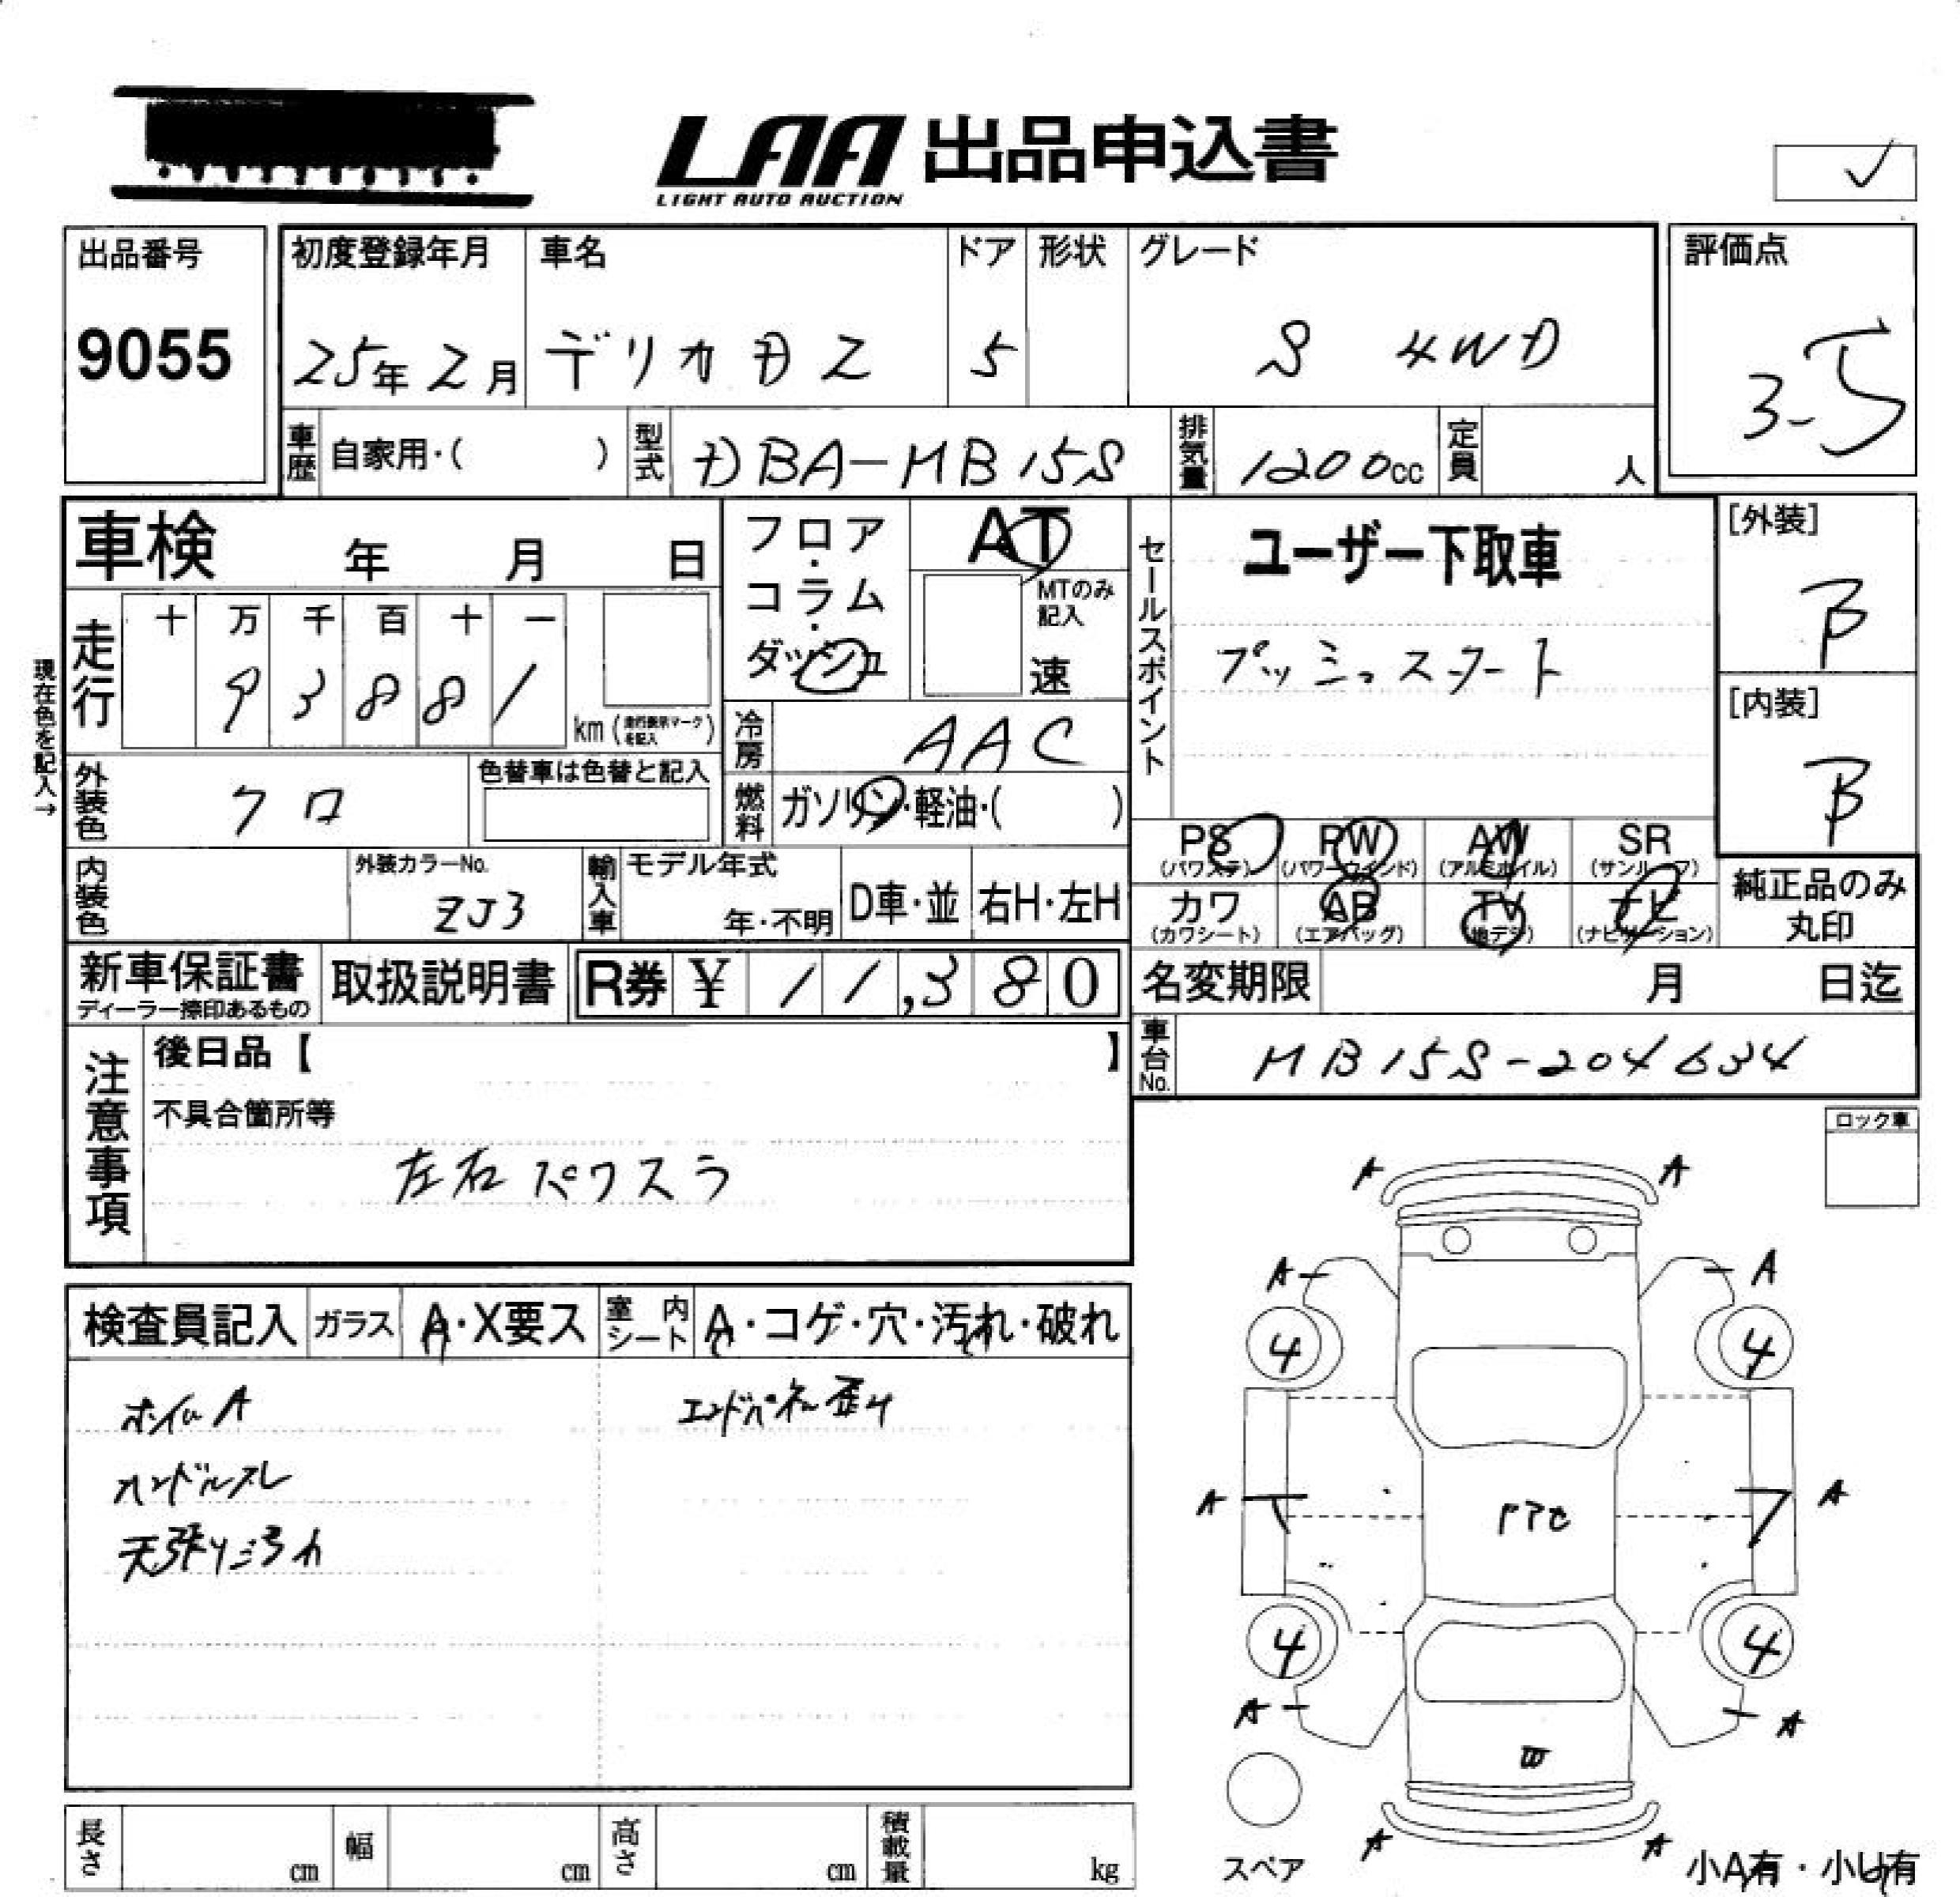 LAA 出品申込書
LIGHT AUTO AUCTION
出品番号
9055
初度登録年月
25年2月
車名
デリカD2
ドア
5
形状
グレード
S 4WD
評価点
3-5
車歴 自家用・( )
型式 DBA-MB15S
排気量 1200cc
定員 人
車検 年 月 日
フロア・コラム・ダッシュ
AT
MTのみ記入
速
セールスポイント
ユーザー下取車
プッシュスタート
[外装]
B
[内装]
B
現在色を記入→
走行
十 万 千 百 十 一
9 3 8 8 1
km (走行表示マークを記入)
冷房 AAC
外装色 クロ
色替車は色替と記入
燃料 ガソリン・軽油・( )
PS (パワステ)
PW (パワーウインド)
AW (アルミホイル)
SR (サンルーフ)
カワ (カワシート)
AB (エアバッグ)
TV (地デジ)
ナビ (ナビゲーション)
純正品のみ丸印
内装色
外装カラーNo.
ZJ3
輸入車
モデル年式
年・不明
D車・並
右H・左H
新車保証書
ディーラー捺印あるもの
取扱説明書
R券 ¥ 11,380
名変期限 月 日迄
車台No. MB15S-204634
注意事項
後日品【 】
不具合箇所等
左右パワスラ
ロック車
検査員記入
ガラス A・X要ス
室内シート A・コゲ・穴・汚れ・破れ
ホイルA
ハンドルスレ
天張り汚れ
エンドパネル歪み
A A
A A
4 4
A A
4 4
A A
A A
スペア
小A有・小U有
長さ cm
幅 cm
高さ cm
積載量 kg